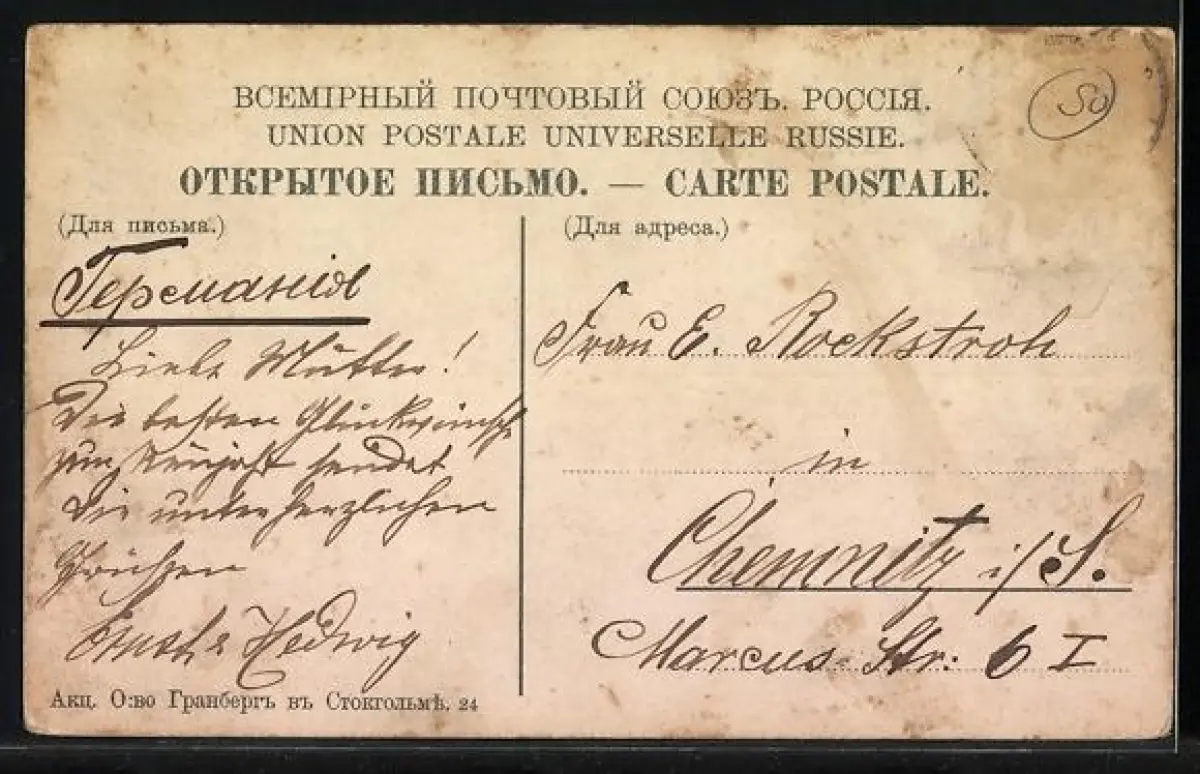 50
ВСЕМІРНЫЙ ПОЧТОВЫЙ СОЮЗЪ. РОССІЯ.
UNION POSTALE UNIVERSELLE RUSSIE.
ОТКРЫТОЕ ПИСЬМО. — CARTE POSTALE.
(Для письма.)
Германія
Liebe Mutter!
Die besten Glückwünsche
zum Neujahr sendet
Dir unter herzlichen
Grüßen
Hedwig
Акц. О:во Гранбергъ въ Стокгольмѣ. 24
(Для адреса.)
Frau E. Rockstroh
in
Chemnitz i/S.
Marcus-Str. 6 I